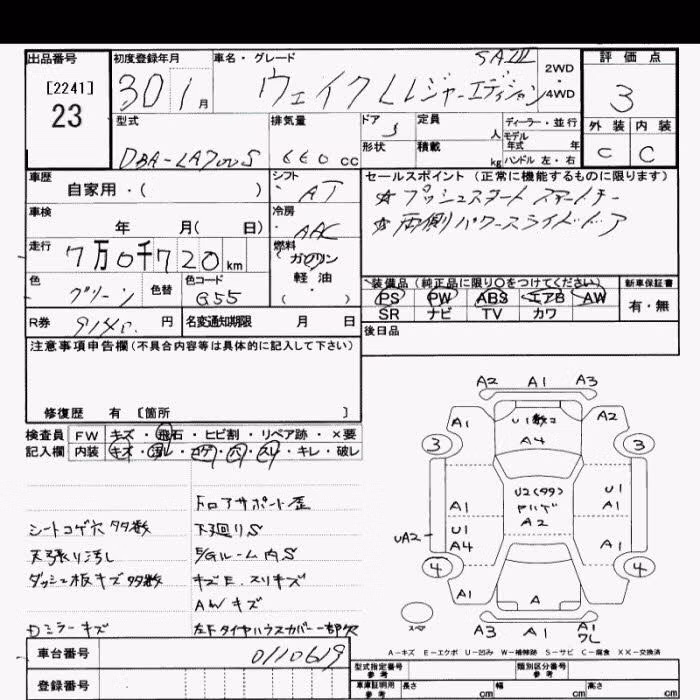 出品番号 初度登録年月 車名・グレード 評価点
[2241] 23
30 1月
ウェイク Lレジャーエディション SAⅢ
2WD・4WD
3
型式 排気量 ドア 定員 ディーラー・並行 外装 内装
DBA-LA700S 660cc 5 人 モデル年式 年
形状 積載 kg ハンドル 左・右 C C
車歴 自家用・( ) シフト AT
セールスポイント(正常に機能するものに限ります)
☆プッシュスタート スマートキー
☆両側パワースライドドア
車検 年 月( 日) 冷房 AAC
走行 7万0千720km 燃料 ガソリン 軽油・( )
色 グリーン 色替 色コード G55
装備品(純正品に限り○をつけてください) 新車保証書
PS PW ABS エアB AW 有・無
SR ナビ TV カワ
R券 9140 円 名変通知期限 月 日
後日品
注意事項申告欄(不具合内容等は具体的に記入して下さい)
修復歴 有 〔箇所 〕
検査員 FW キズ・飛石・ヒビ割・リペア跡・×要
記入欄 内装 キズ・汚レ・コゲ・穴・スレ・キレ・破レ
ドロアサポート歪
シートコゲ穴多数 下廻りS
天張り汚し E/Gルーム内S
ダッシュ板キズ多数 キズE.スリキズ
AWキズ
Dミラーキズ 左Fタイヤハウスカバー一部欠
A2 A1 A3
A1 U1数コ A2
A4
3 3
U2(99)
ヤハゲ
A2
A1 U1
A1
UA2 U1
A4 A1
4 4
A1 A
スペア
A3 A1 A1
ワレ
A-キズ E-エクボ U-凹み W-補修跡 S-サビ C-腐食 XX-交換済
車台番号 0110619
登録番号
型式指定番号 参考 類別区分番号 参考
車庫証明用 参考 長さ cm 幅 cm 高さ cm